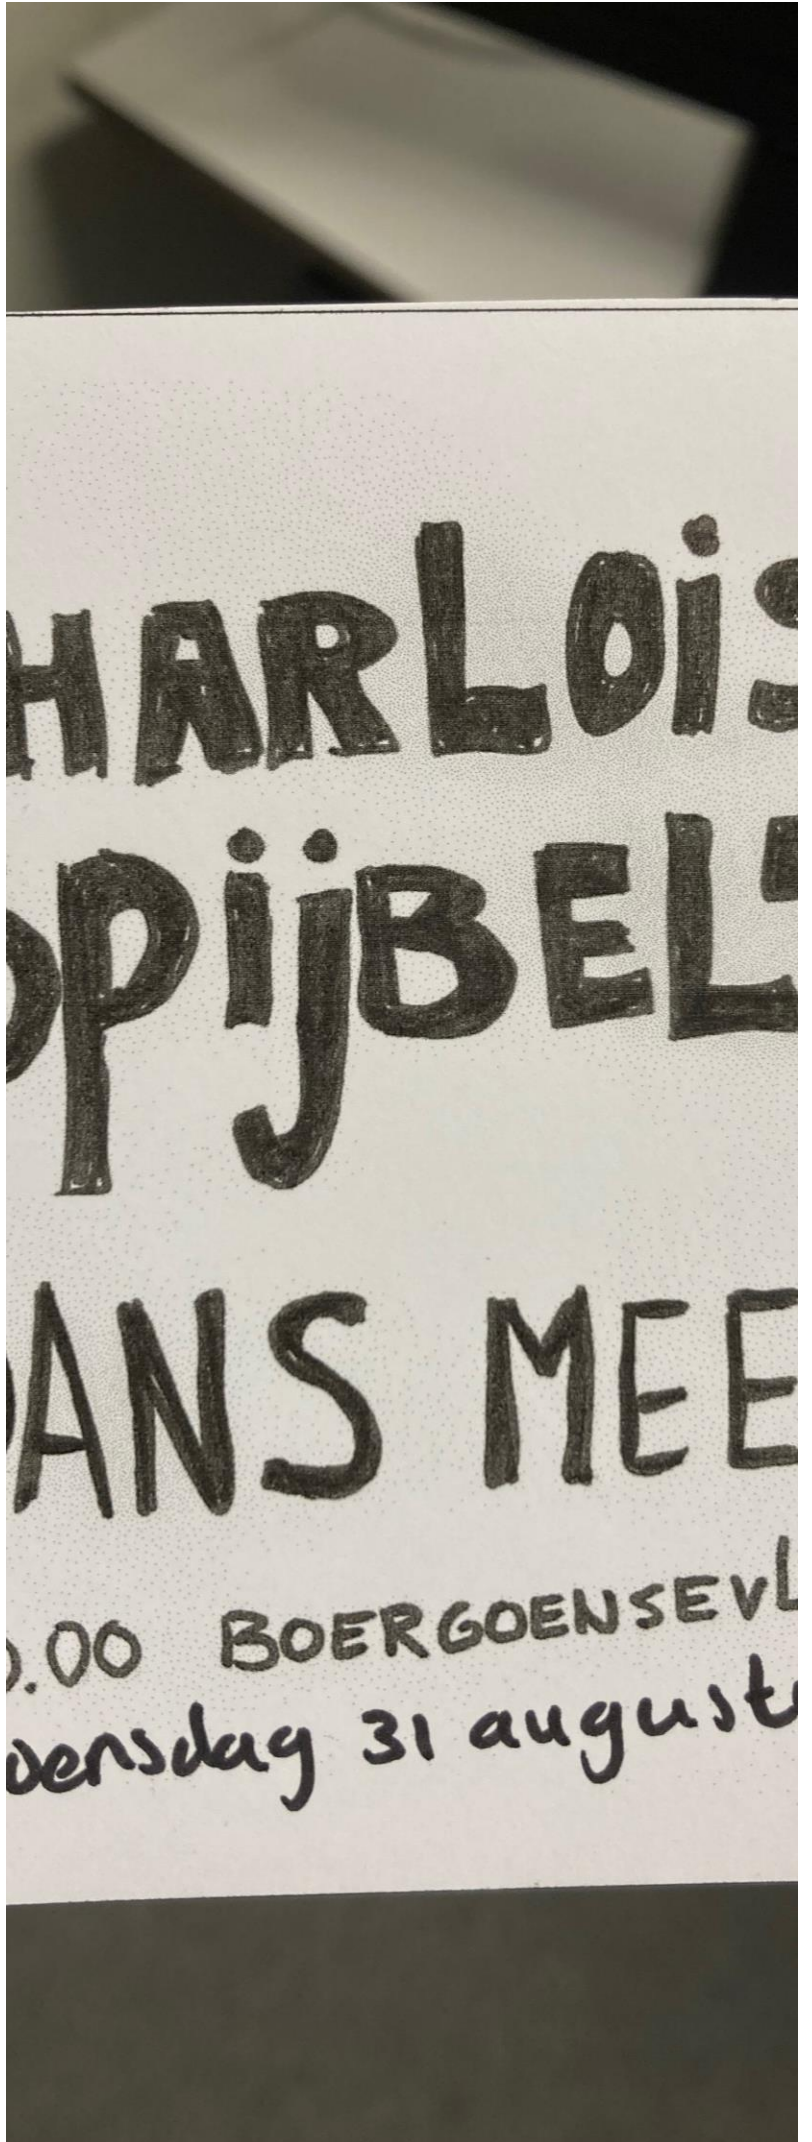 HARLOIS
OPijBELT
DANS MEE
0.00 BOERGOENSEVL
oensdag 31 august